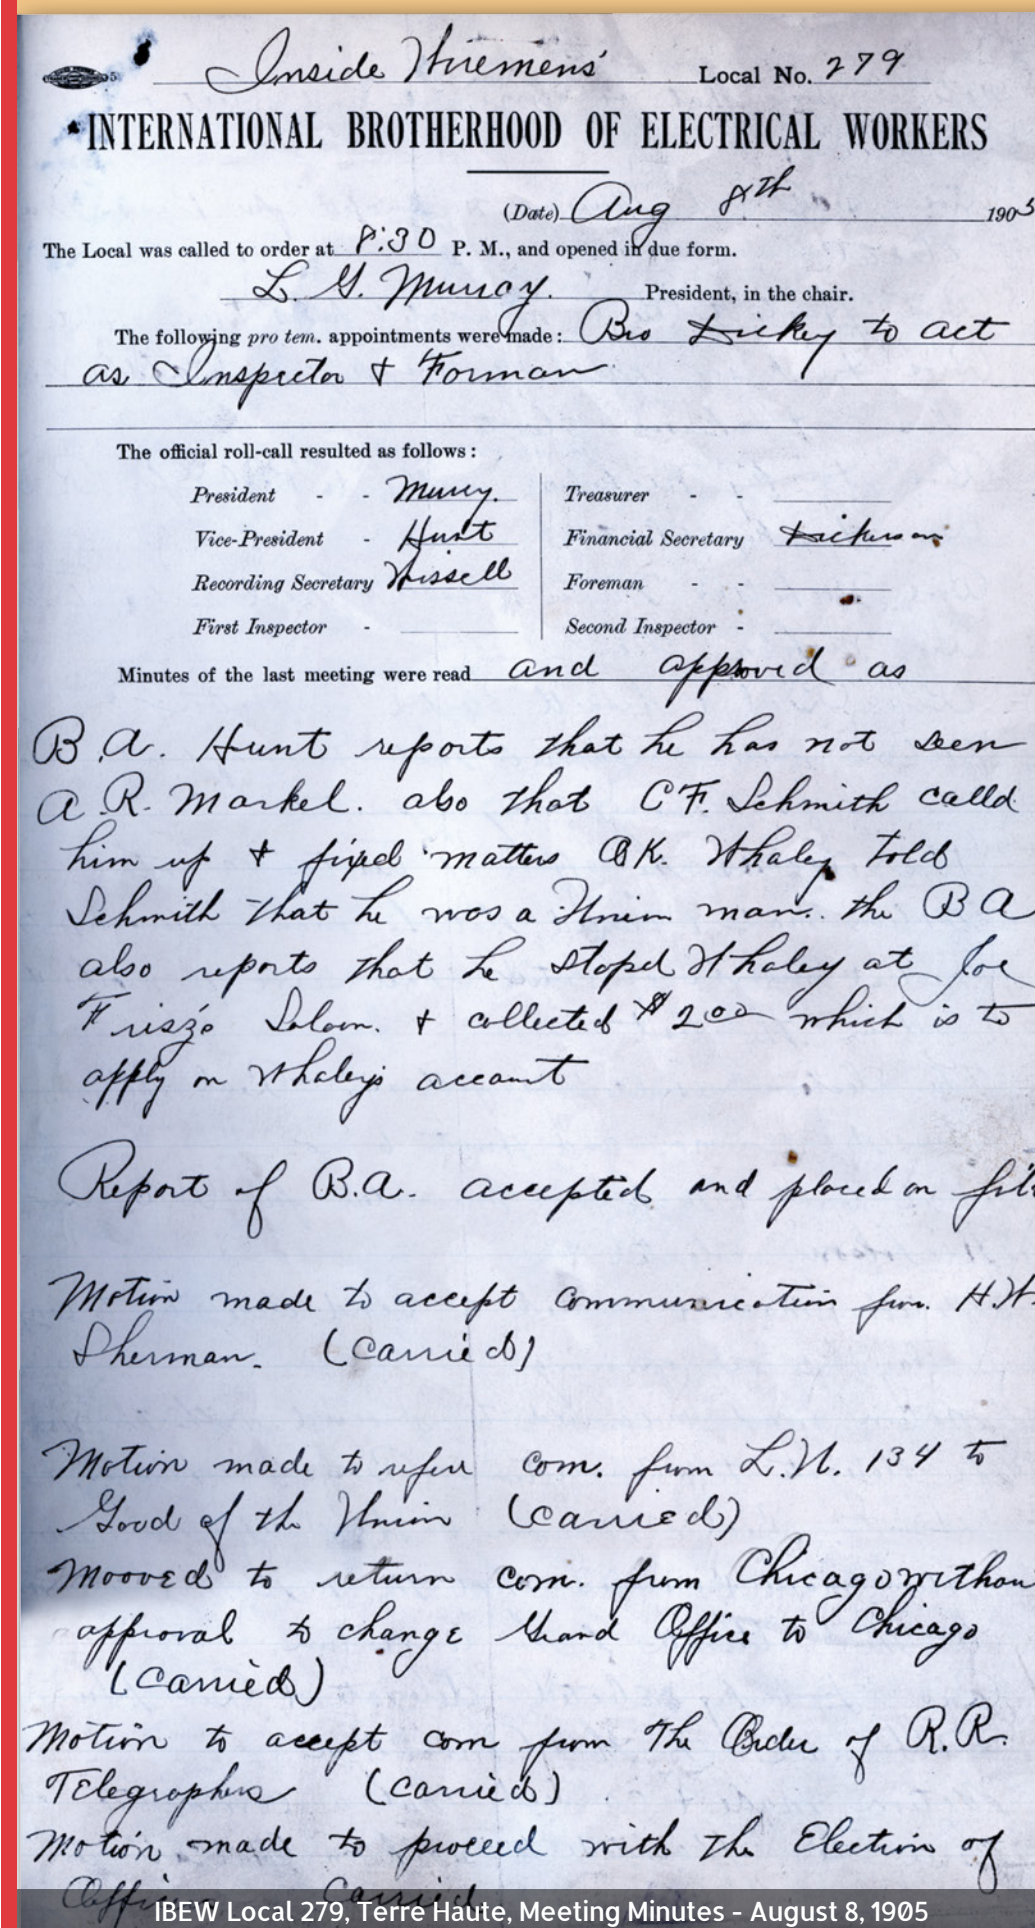 Inside Wiremens' Local No. 279
INTERNATIONAL BROTHERHOOD OF ELECTRICAL WORKERS
(Date) Aug 8th 1905
The Local was called to order at 8:30 P. M., and opened in due form.
L. G. Murray. President, in the chair.
The following pro tem. appointments were made: Bro Dickey to act
as Inspector & Forman
The official roll-call resulted as follows:
President - - Murry. Treasurer - -
Vice-President - Hunt Financial Secretary Dickerson
Recording Secretary Foreman - -
First Inspector - Second Inspector -
Minutes of the last meeting were read and approved as
B.A. Hunt reports that he has not seen
A.R. Markel. also that C.F. Schmith calld
him up & fixed matters K. Whaley told
Schmith that he was a Union man. the B A
also reports that he stoped Whaley at Joe
Saloon. & collected $2.00 which is to
apply on Whaley's account
Report of B.A. accepted and placed on fil
Motion made to accept communication from. H.W.
Sherman. (Carried)
Motion made to refer com. from L.U. 134 to
Good of the Union (Carried)
Mooved to return com. from Chicago withou
approval to change Grand Office to Chicago
(Carried)
Motion to accept com from The Order of R.R.
Telegraphers (Carried)
Motion made to proceed with the Election of
Carried
IBEW Local 279, Terre Haute, Meeting Minutes - August 8, 1905